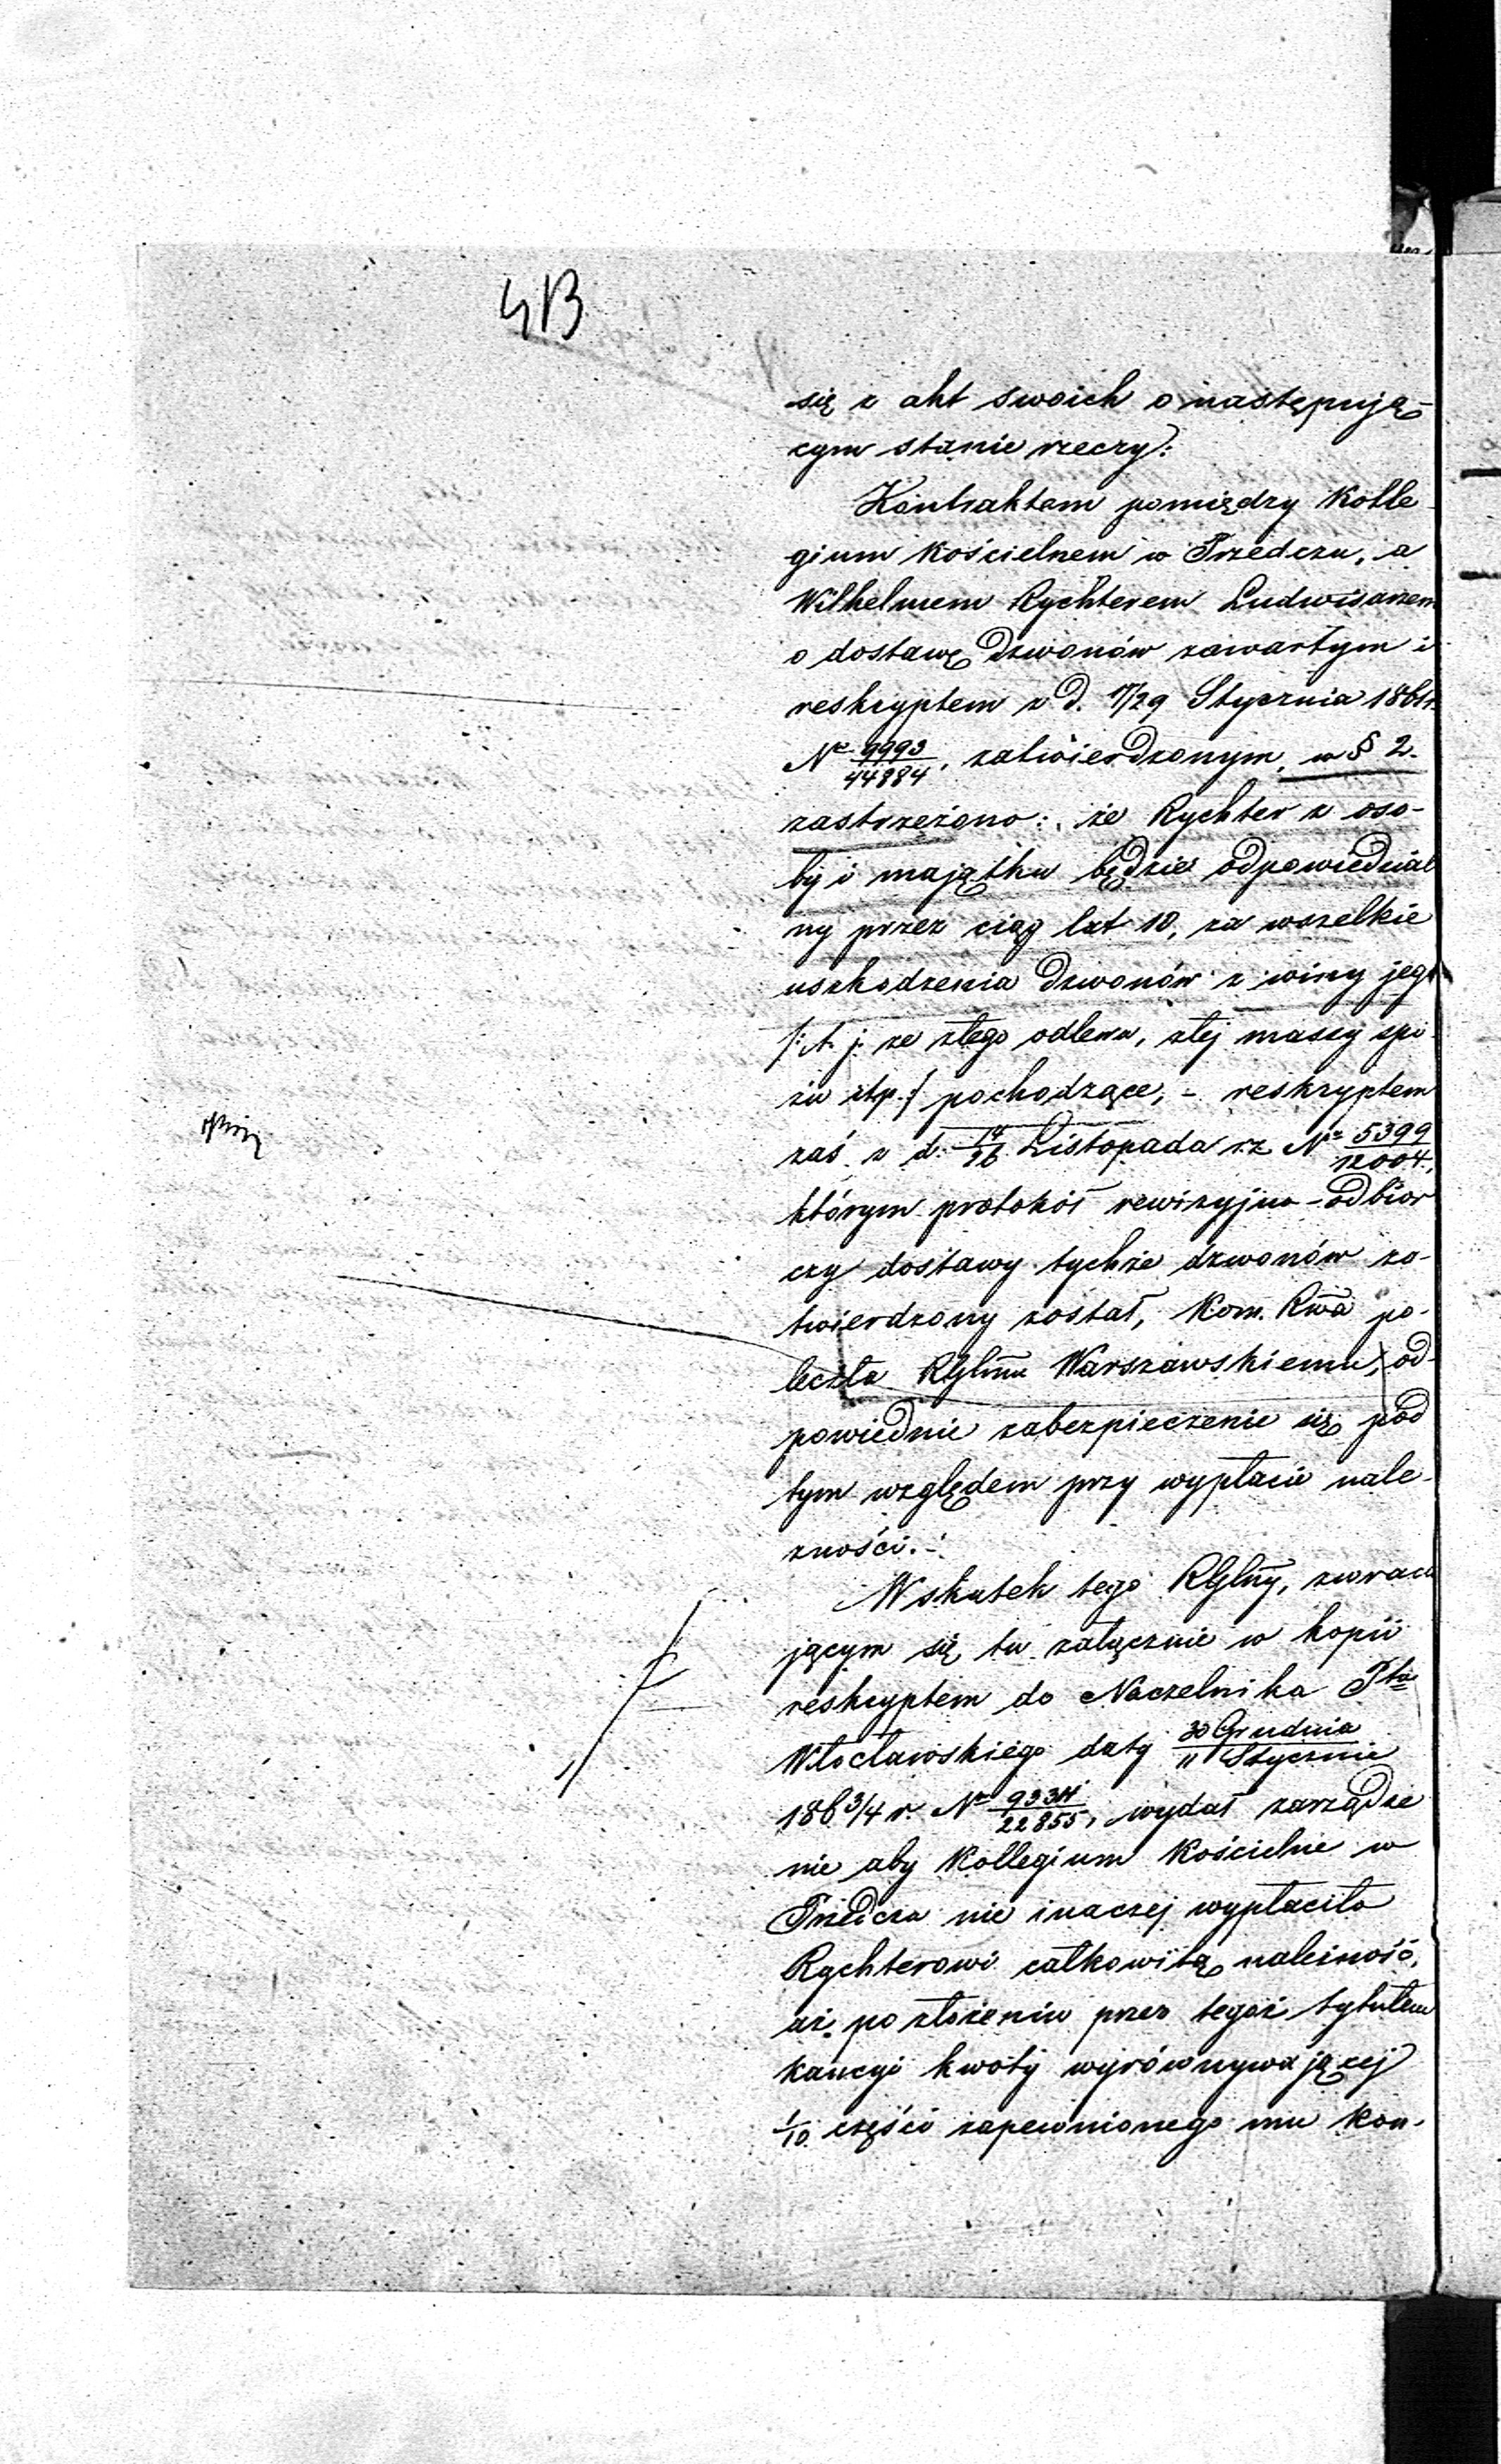 413
się z akt swoich o następują-
cym stanie rzeczy:
Kontraktem pomiędzy Kolle-
gium Kościelnem w Przedczu, a
Wilhelmem Rychterem Ludwisarzem
o dostawę dzwonów zawartym i
reskryptem z d. 17/29 Stycznia 1861 r.
No 9993/44884, zatwierdzonym, w § 2.
zastrzeżono: że Rychter z oso-
by i majątku będzie odpowiedzial
ny przez ciąg lat 10, za wszelkie
uszkodzenia dzwonów z winy jego
/: t. j. ze złego odlewu, złej massy spi-
żu itp. :/ pochodzące, - reskryptem
zaś z d. 14/26 Listopada r. z. No 5399/12004,
którym protokół rewizyjno-odbior
czy dostawy tychże dzwonów za-
twierdzony został, Kom. Rwa po-
leciła RGlnu Warszawskiemu, od-
powiednie zabezpieczenie się pod
tym względem przy wypłacie nale-
żności.-
Wskutek tego RGlny, zwraca
jącym się tu załącznie w kopii
reskryptem do Naczelnika Ptu
Włocławskiego daty 30 Grudnia/11 Stycznia
1863/4 r. No 9334/22855, wydał zarządze
nie aby Kollegium Kościelne w
Przedczu nie inaczej wypłaciło
Rychterowi całkowitą należność,
aż po złożeniu przez tegoż tytułem
kaucyi kwoty wyrównywającej
1/10 części zapewnionego mu kon-